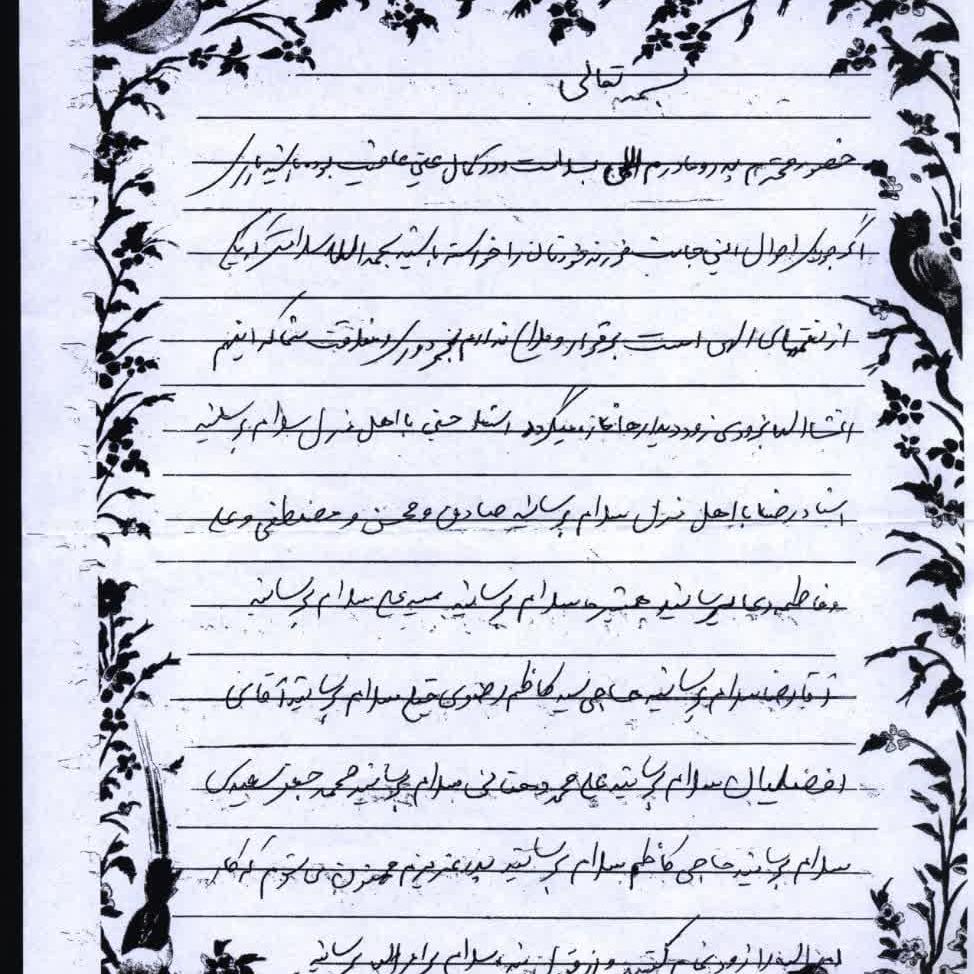 بسمه تعالی
حضور محترم پدر و مادرم سلامت و در کمال عافیت بوده باشید
اگر جویای احوال این جانب فرزند خودتان را خواسته باشید بحمدالله سلامتی که یکی
از نعمتهای الهی است برقرار و ملالی ندارم بجز دوری و مفارقت شما که اینهم
انشاالله بزودی زود دیدارها تازه میگردد استاد حتی با اهل منزل سلام برسانید
استاد رضا با اهل منزل سلام برسانید صادق و محسن و مصطفی و علی
و فاطمه دعا برسانید همشیرها سلام برسانید سید علی سلام برسانید
آقا رضا سلام برسانید حاجی سید کاظم رضوی سلام برسانید آقای
افضلیان سلام برسانید علی محمد سلام برسانید محمد جعفر سعیدی
سلام برسانید حاجی کاظم سلام برسانید پدر عزیزم ممنون می شوم که
را زود سلام برسانید